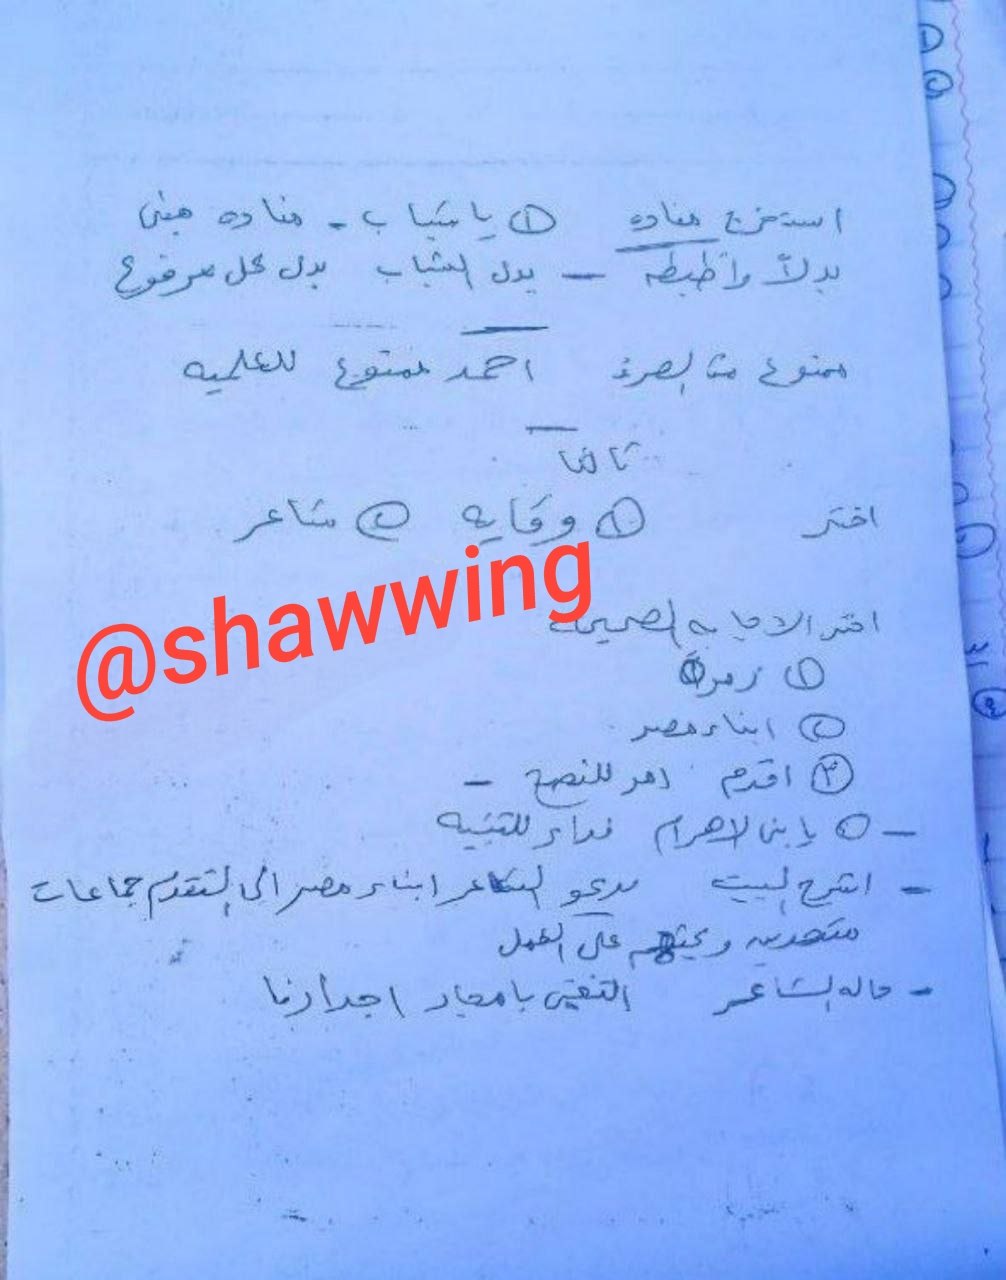 استخرج مناده ① يا شباب - مناده مبنى
بدلاً واضبطه - بدل الشباب بدل كل مرفوع
ممنوع من الصرف احمد ممنوع للعلميه
ثالثا
اختر ① وقايه ② شاعر
@shawwing
اختر الاجابه الصحيحه
① زمرة
② ابناء مصر
③ اقدم امر للنصح -
- ⓪ يا بنى الاهرام نداء للتنبيه
- اشرح البيت يدعو الشاعر ابناء مصر الى التقدم جماعات
متحدين ويحثهم على العمل
- حاله الشاعر التغنى بامجاد اجدادنا